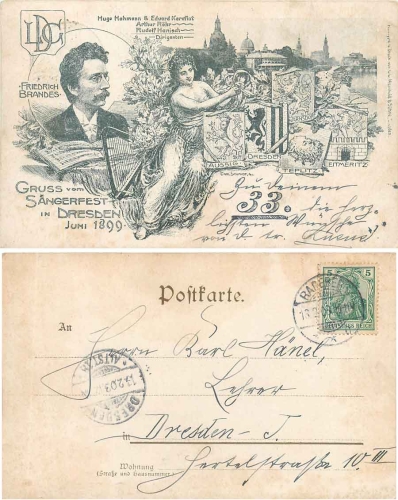 LDG
Hugo Hahmann & Eduard Kerefist
Arthur Röhr
Rudolf Hanisch
Dirigenten
FRIEDRICH
BRANDES
AUSSIG
DRESDEN
TEPLITZ
LEITMERITZ
GRUSS VOM
SÄNGERFEST
IN DRESDEN
JUNI 1899
Zu Deinem
33. die herz-
lichsten Wünsche
von d. tr.
Postkarte.
5 5
DEUTSCHES REICH
An
Herrn Karl Hänel,
Lehrer
DRESDEN ALTST.
13.2.03
in Dresden-J.
Wohnung
(Straße und Hausnummer)
Hertelstraße 10 III